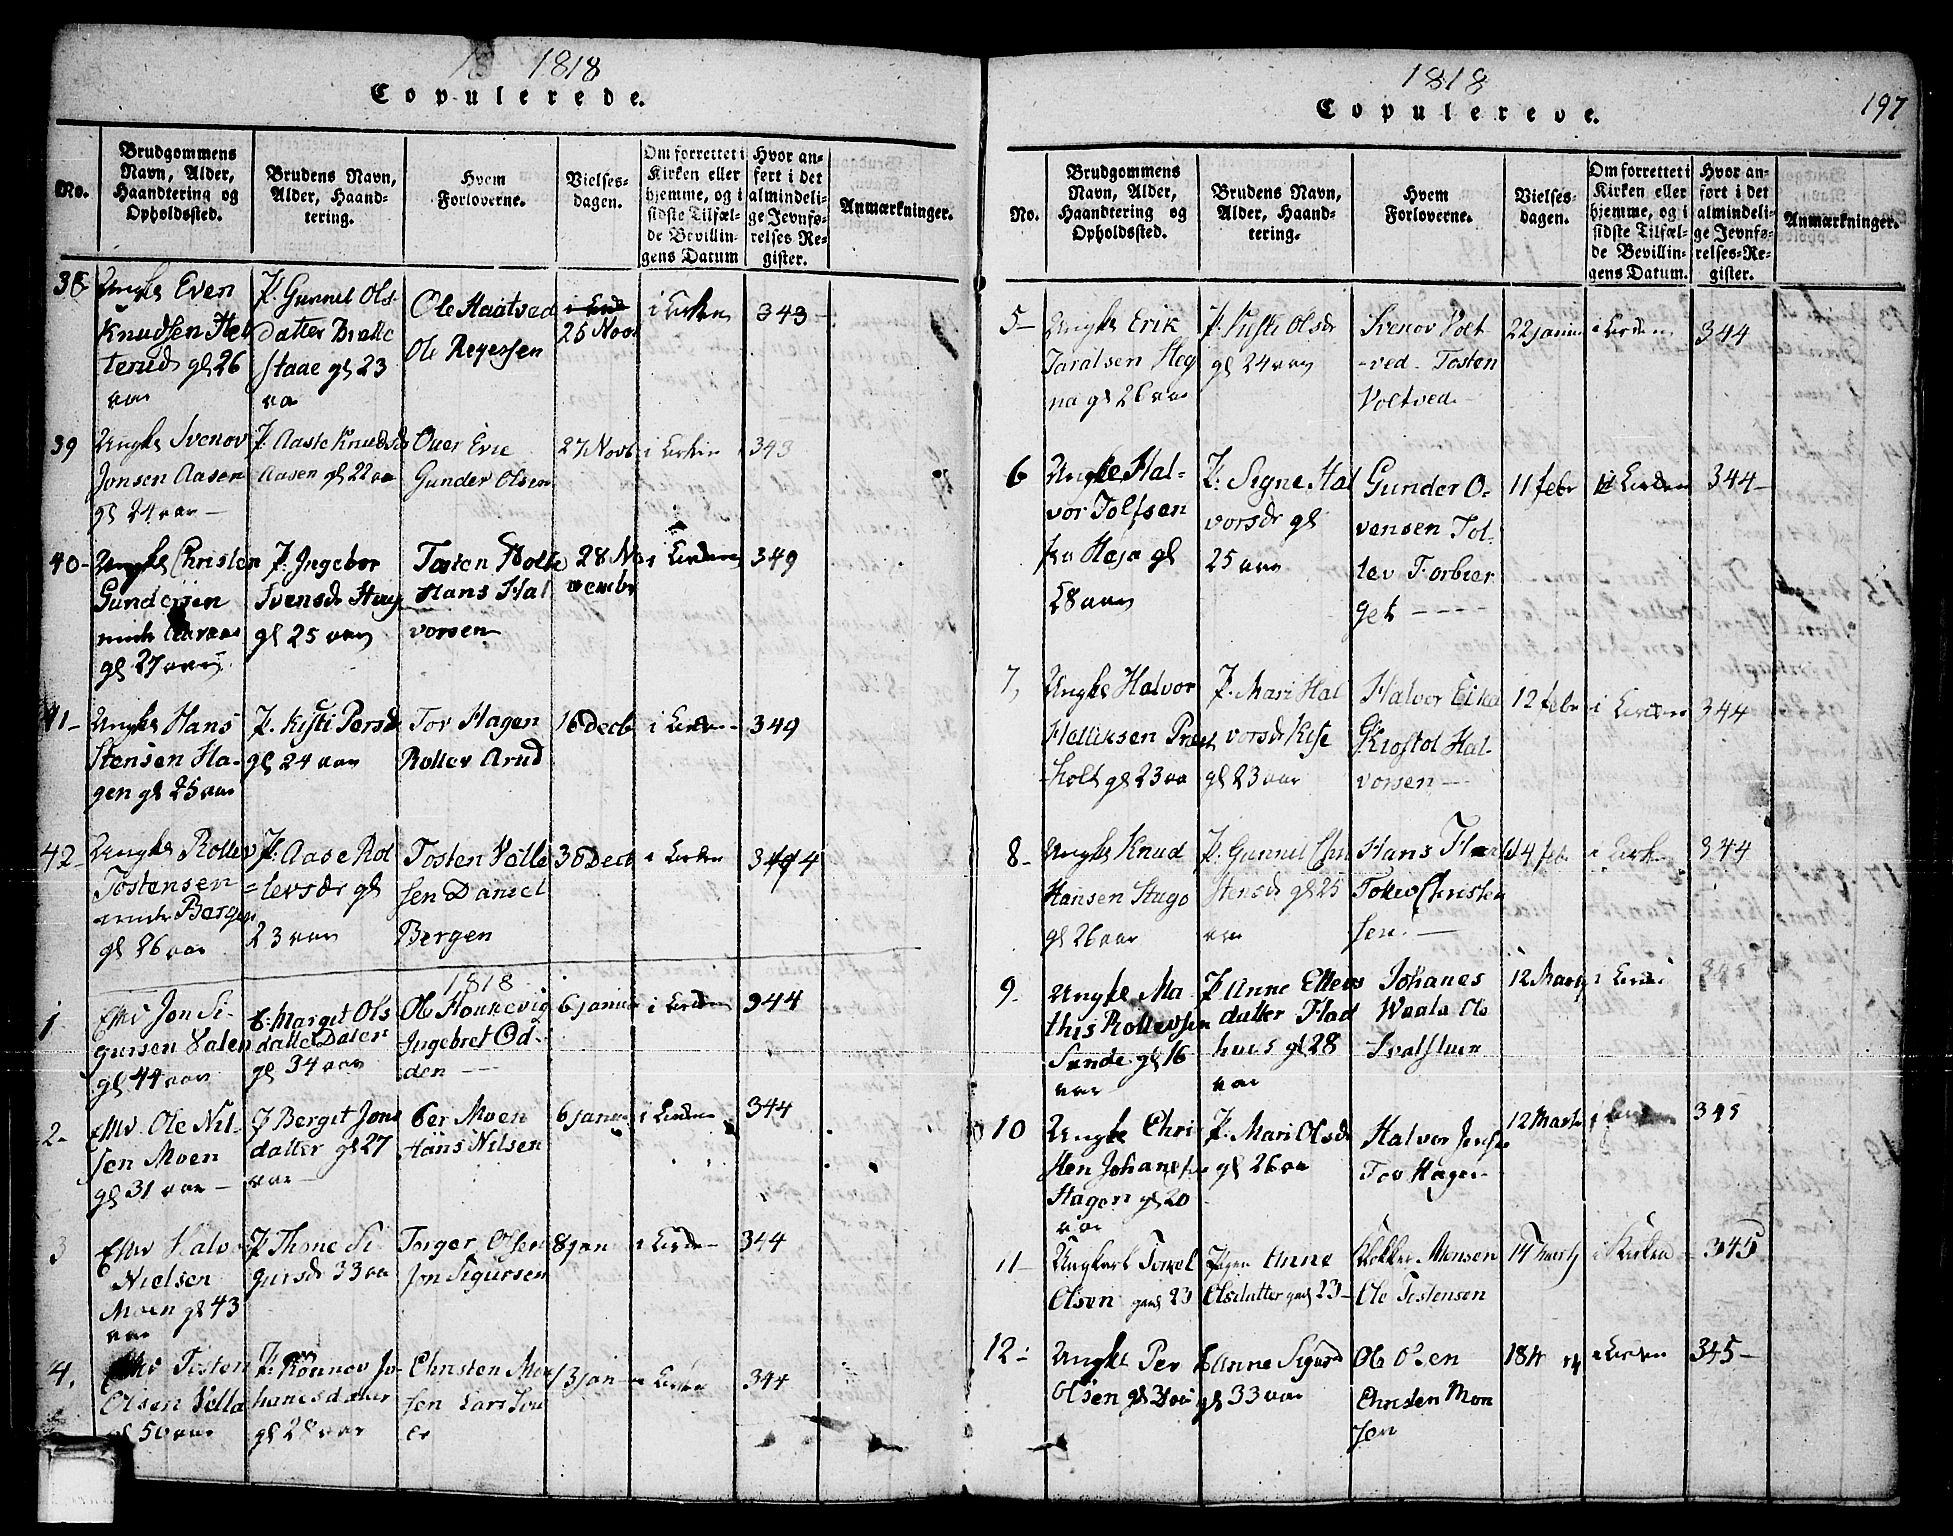 1818
Copulerede.
No.
Brudgommens Navn, Alder, Haandtering og Opholdssted.
Brudens Navn, Alder, Haandtering.
Hvem Forloverne.
Vielsesdagen.
Om forrettet i Kirken eller hjemme, og i sidste Tilfælde Bevillingens Datum
Hvor anført i det almindelige Jevnførelses-Register.
Anmærkninger.
38
Ungk Even
Knudsen Het
terud gl 26
aar
P. Gunnil Ols
datter Bratte
staae gl 23
aa
Ole Haatsad
Ole Regersen
25 Nov
i Kirken
343
39
Ungk Svenov
Jonsen Aasen
gl 24 aar
P. Aaste Knudsd
Aasen gl 22 aa
Over Evie
Gunder Olsen
27 Novb
i Kirken
343
40
Ungk Christen
Gundersen
gl 27 aar
P. Ingebor
Svensdr
gl 25 aar
Tosten Bolte
Hans Hal
vorsen
28 No
vembr
i Kirken
349
41
Ungk Hans
Stensen Ha-
gen gl 25 aar
P. Kisti Persdr
gl 24 aar
Tov Hagen
Rollev Arud
16 Decb
i Kirken
349
42
Ungk Rollev
Tostensen
Bergen
gl 26 aar
P. Aase Rol
levsdr gl
23 aar
Tosten Velle
sen Daniel
Bergen
30 Decb
i Kirken
344
1818
1
Emv Jon Si-
gursen Valen
gl 44 aar
E. Margit Ols
datter Daler
gl 34 aar
Ole Honnevig
Ingebret Od-
den
6 januar
i Kirken
344
2
Emv. Ole Nil-
sen Moen
gl 31 aar
P Bergit Jons
datter gl 27
aar
Per Moen
Hans Nilsen
6 janu
i Kirken
344
3
Emv Halvo
Nielsen
Moen gl 43
aar
P. Thone Si
gursdr 33 aa
Torger Olsen
Jon Sigursen
8 jan
i Kirken
344
4.
Emv Tosten
Olsen Vella
gl 50 aar
P. Rønnov Jo-
hanesdatter
gl 28 aar
Christen Mon
sen Lars
13 jan
i Kirken
344
1818
Copulerede.
197
No.
Brudgommens Navn, Alder, Haandtering og Opholdssted.
Brudens Navn, Alder, Haandtering.
Hvem Forloverne.
Vielsesdagen.
Om forrettet i Kirken eller hjemme, og i sidste Tilfælde Bevillingens Datum.
Hvor anført i det almindelige Jevnførelses-Register.
Anmærkninger.
5
Ungk Erik
Taralsen Heg
na gl 26 aar
P. Kisti Olsdr
gl 24 aar
Svenov Volt
-ved. Tosten
Voltved
22 janu
i Kirken
344
6
Ungk Hal-
vor Tolfsen
fra Heja gl
28 aar
P. Signe Hal
vorsdr gl
25 aar
Gunder O-
vensen Tol-
lev Forbier
get
11 febr
i Kirken
344
7,
Ungk Halvor
Helliksen Prest
-holt gl 23 aa
P. Mari Hal
vorsdr Kise
gl 23 aar
Halvor Eika
Krostol Hal-
vorsen
12 febr
i Kirken
344
8
Ungk Knud
Hansen Hago
gl 26 aar
P. Gunnil Chri
stensdr gl 25
aar
Hans
Tollev Christen
sen.
14 feb
i Kirken
344
9
Ungk Ma
this Rollevsen
Sunde gl 16
aar
P Anne Ellevs
datter Flad
huus gl 28
aar
Johanes
Waala Ole
12 Marty
i Kirken
345
10
Ungk Chri
sten Johanes
Hagen gl 20
aar
P. Mari Olsdr
gl 26 aa
Halvor Jensen
Tov Hagen
12 Marts
i Kirken
345
11
Ungkarl Torkel
Olsen gml 23
Pigen Anne
Olsdatter gml 23
Klokker Monsen
Ole Tostensen
17 Marty
i Kirken
345
12
Ungk Per
Olsen gl
E Anne Sigurd
gl 33 aar
Ole Olsen
Christen Mon
sen
i Kirken
345